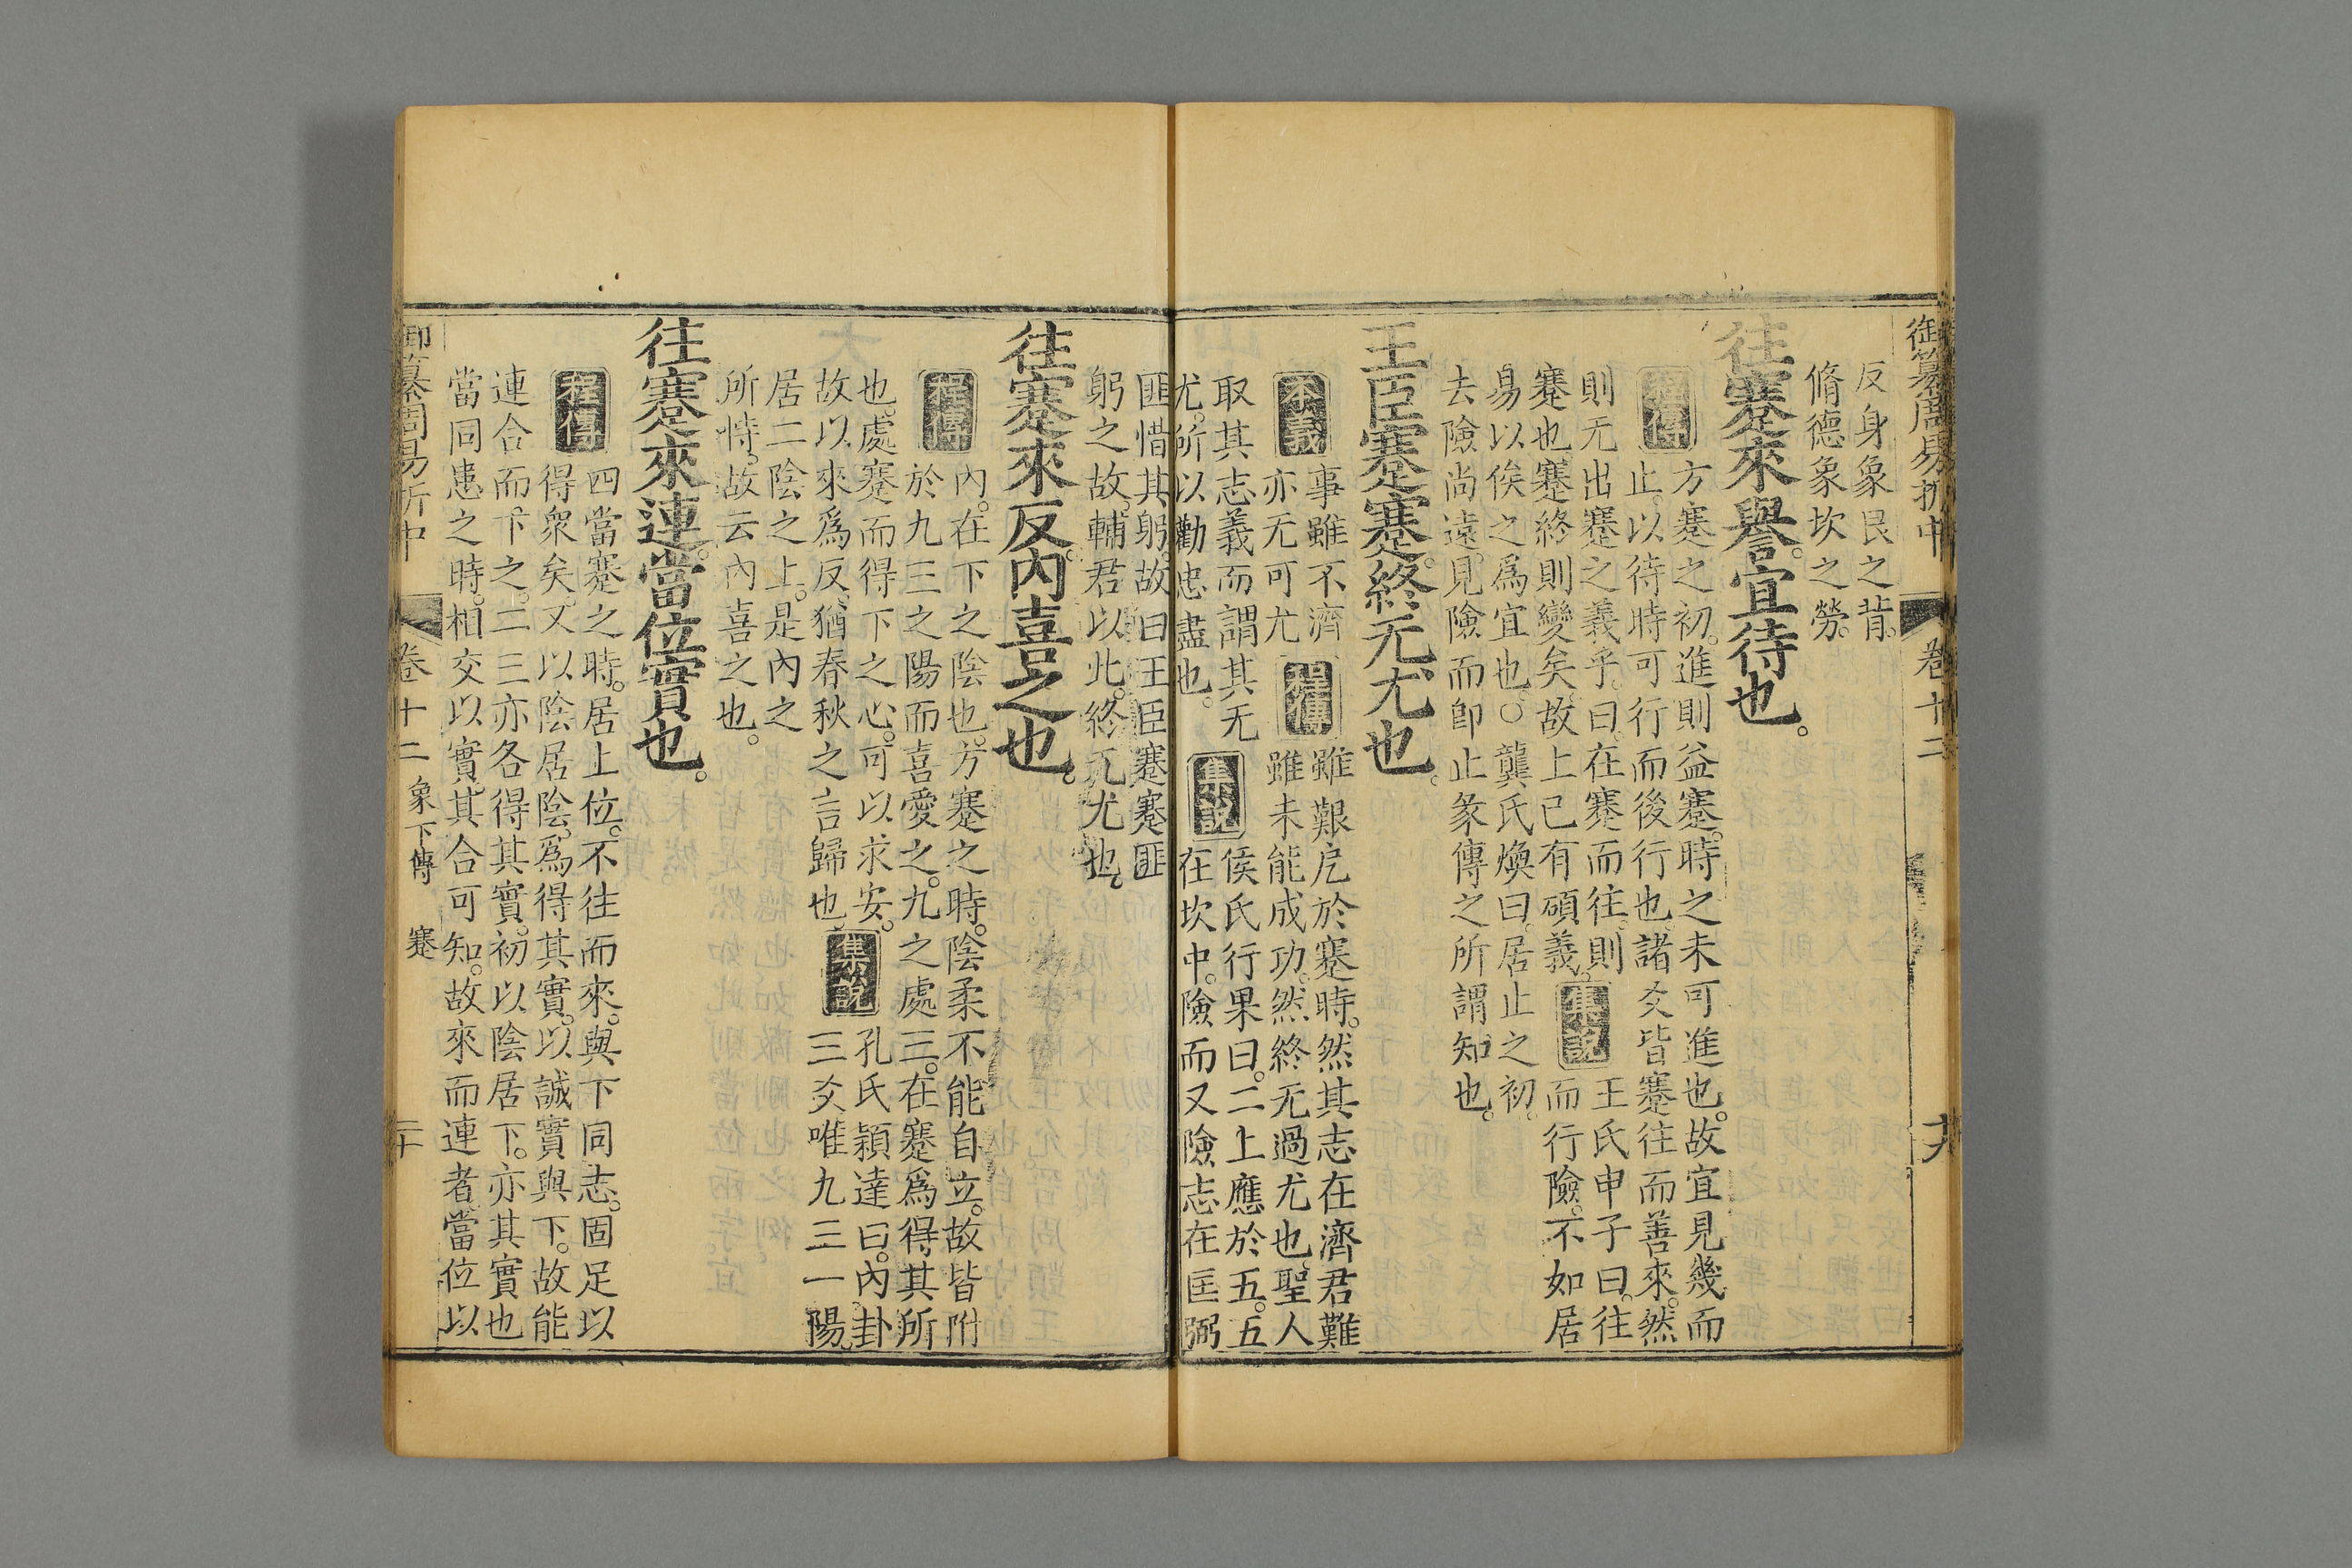 御纂周易折中 卷十二 十九
反身象艮之背。
脩德象坎之勞。
往蹇來譽。宜待也。
程傳 方蹇之初。進則益蹇。時之未可進也。故宜見幾而
止。以待時可行而後行也。諸爻皆蹇往而善來。然
則无出蹇之義乎。曰。在蹇而往。則
蹇也。蹇終則變矣。故上已有碩義。 集說 王氏申子曰。往
而行險。不如居
易以俟之爲宜也。○龔氏煥曰。居止之初。
去險尚遠。見險而卽止。彖傳之所謂知也。
王臣蹇蹇。終无尤也。
本義 事雖不濟
亦无可尤 程傳 雖艱戹於蹇時。然其志在濟君難
雖未能成功。然終无過尤也。聖人
取其志義而謂其无
尤。所以勸忠盡也。 集說 侯氏行果曰。二上應於五。五
在坎中。險而又險。志在匡弼
匪惜其躬。故曰王臣蹇蹇匪
躬之故。輔君以此。終无尤也。
往蹇來反。內喜之也。
程傳 內。在下之陰也。方蹇之時。陰柔不能自立。故皆附
於九三之陽而喜愛之。九之處三。在蹇爲得其所
也。處蹇而得下之心。可以求安。
故以來爲反。猶春秋之言歸也。 集說 孔氏穎達曰。內卦
三爻唯九三一陽。
居二陰之上。是內之
所恃。故云內喜之也。
往蹇來連。當位實也。
程傳 四當蹇之時。居上位。不往而來。與下同志。固足以
得衆矣。又以陰居陰。爲得其實。以誠實與下。故能
連合而下之。二三亦各得其實。初以陰居下。亦其實也
當同患之時。相交以實。其合可知。故來而連者。當位以
御纂周易折中 卷十二 象下傳 蹇 二十